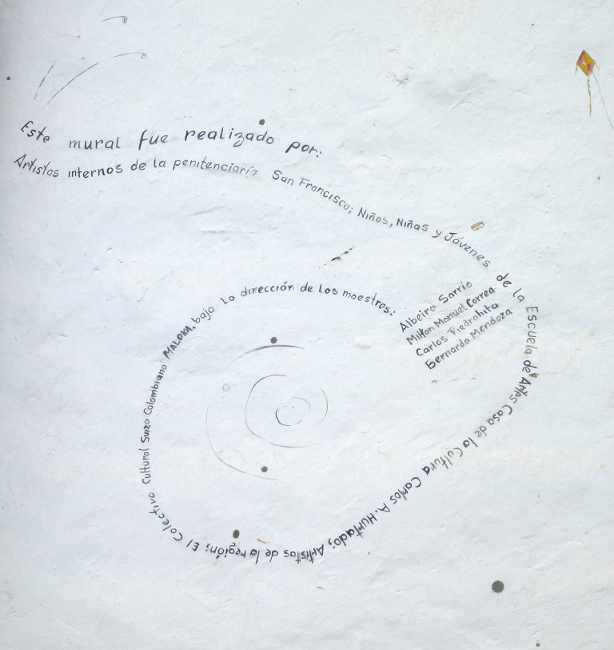 Este mural fue realizado por:
Artistas internos de la penitenciaría San Francisco; Niños, Niñas y Jóvenes de la Escuela de Artes Casa de la Cultura Carlos A. Hurtado; Artistas de la región; El Colectivo Cultural Suizo Colombiano MALOKA, bajo la dirección de los maestros:
Albeiro Sarria
Milton Manuel Correa
Carlos Piedrahita
Bernardo Mendoza